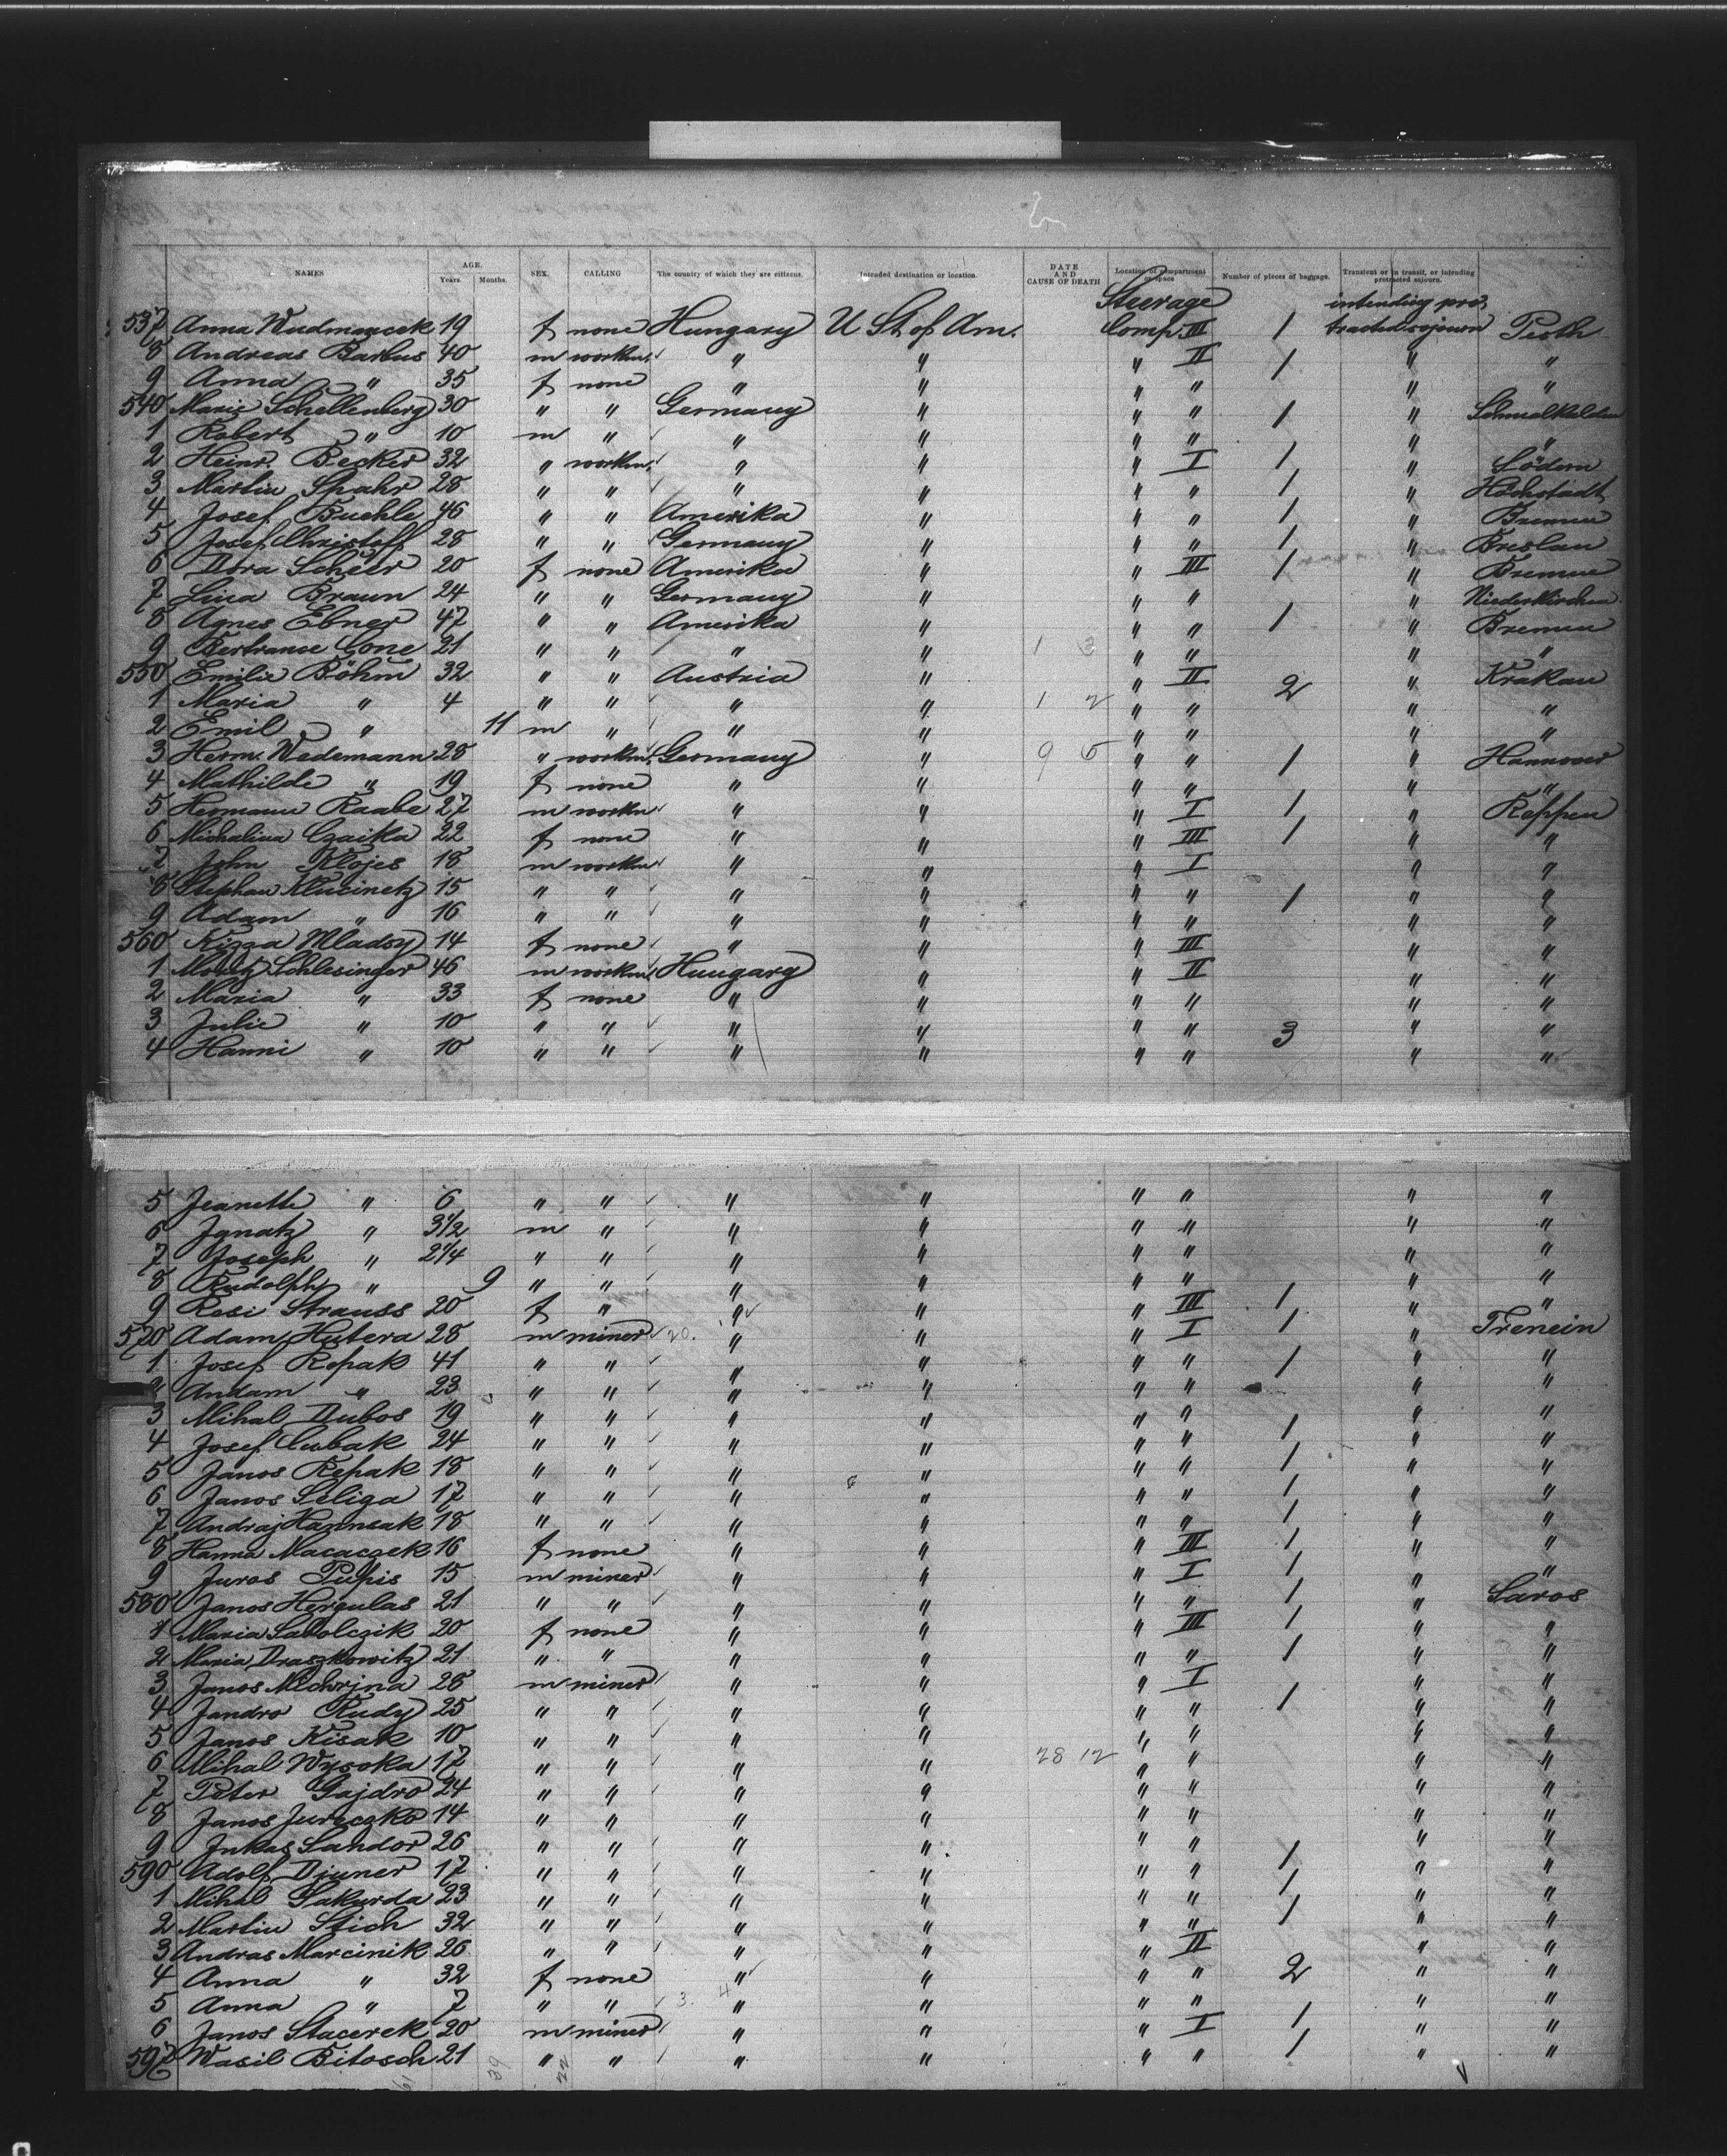 NAMES AGE. Years. Months. SEX. CALLING The country of which they are citizens. Intended destination or location. DATE AND CAUSE OF DEATH Location of compartment or space Number of pieces of baggage. Transient or in transit, or intending protracted sojourn.
Steerage intending pro-
537 Anna 19 f none Hungary U St of Am. Comp. III 1 tracted sojourn Pesth
8 Andreas Barbus 40 m workm. " " " II 1 " "
9 Anna " 35 f none " " " " " "
540 Marie Schellenberg 30 " " Germany " " " 1 "
1 Robert " 10 m " " " " " " "
2 Heinr. Becker 32 " workm. " " " I 1 " Södern
3 Martin Spahr 28 " " " " " " 1 " Hochstadt
4 Josef Buehle 46 " " Amerika " " " 1 " Bremen
5 Josef Christoff 28 " " Germany " " " 1 " Breslau
6 Dora Scheer 20 f none Amerika " " III 1 " Bremen
7 Lina Braun 24 " " Germany " " " " Niederkirchen
8 Agnes Ebner 47 " " Amerika " " " 1 " Bremen
9 Bertrance Cone 21 " " " " 1 3 " " " "
550 Emilie Böhm 32 " " Austria " " II 2 " Krakau
1 Maria " 4 " " " " 1 2 " " " "
2 Emil " 11 m " " " " " " "
3 Herm. Wedemann 28 " workm. Germany " 9 5 " " 1 " Hannover
4 Mathilde " 19 f none " " " " " "
5 Hermann Raabe 27 m workm " " " I 1 " Röppen
6 Michalina Czaika 22 f none " " " III 1 " "
7 John Klojes 18 m workm " " " I " "
8 Stephan Klucinetz 15 " " " " " " 1 " "
9 Adam " 16 " " " " " " " "
560 Kizza Mladsy 14 f none " " " III " "
1 Moritz Schlesinger 46 m workm. Hungary " " II " "
2 Maria " 33 f none " " " " " "
3 Julie " 10 " " " " " " 3 " "
4 Hanni " 10 " " " " " " " "
5 Jeanette " 6 " " " " " " " "
6 Ignatz " 3 1/2 m " " " " " " "
7 Joseph " 2 1/4 " " " " " " " "
8 Rudolph " 9 " " " " " " " "
9 Resi Strauss 20 f " " " " III 1 " "
570 Adam Hutera 28 m miner 20. " " " I 1 " Trenein
1 Josef Repak 41 " " " " " " 1 " "
2 Andam " 23 " " " " " " " "
3 Mihal Dubos 19 " " " " " " 1 " "
4 Josef Cubak 24 " " " " " " 1 " "
5 Janos Repak 18 " " " " " " 1 " "
6 Janos Seliga 17 " " " " " " 1 " "
7 Andraj Hannsak 18 " " " " " " 1 " "
8 Hanna Macaczek 16 f none " " " III 1 " "
9 Juros Pupis 15 m miner " " " I 1 " "
580 Janos Hergulas 21 " " " " " " 1 " Saros
1 Maria Sabolczik 20 f none " " " III 1 " "
2 Maria Draszkowitz 21 " " " " " " 1 " "
3 Janos 28 m miner " " " I " "
4 Jandro Rudy 25 " " " " " " 1 " "
5 Janos Kisak 10 " " " " " " " "
6 Mihal Wysoka 17 " " " " 28 12 " " " "
7 Peter Gajdro 24 " " " " " " " "
8 Janos Jureczko 14 " " " " " " " "
9 Jukas Sandor 26 " " " " " " 1 " "
590 Adolf Diuner 17 " " " " " " 1 " "
1 Mihal Sakurda 23 " " " " " " 1 " "
2 Martin Stich 32 " " " " " " " "
3 Andras Marcinik 26 " " " " " II " "
4 Anna " 32 f none " " " " 2 " "
5 Anna " 7 " " 3. 4 " " " " " "
6 Janos Stacerek 20 m miner " " " I 1 " "
597 Wasil Bitosch 21 " " " " " " 1 " "